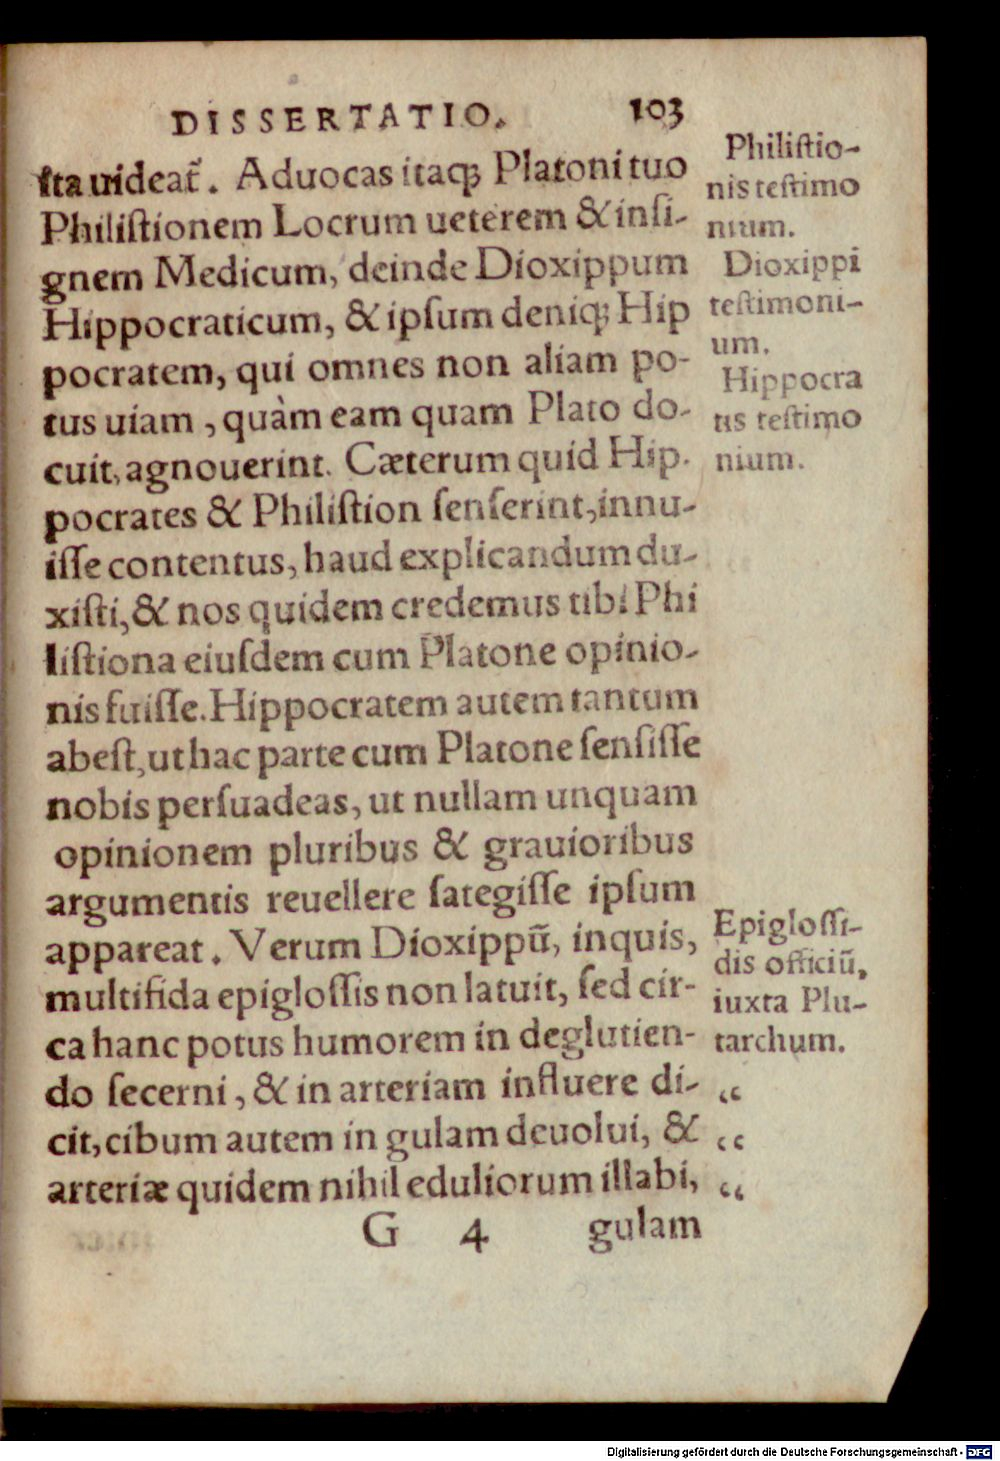 DISSERTATIO. 103
ſta uideat᷑. Aduocas itaqꝫ Platoni tuo
Philiſtionem Locrum ueterem & inſi-
gnem Medicum, deinde Dioxippum
Hippocraticum, & ipſum deniqꝫ Hip
pocratem, qui omnes non aliam po-
tus uiam, quàm eam quam Plato do-
cuit, agnouerint. Cæterum quid Hip.
pocrates & Philiſtion ſenſerint, innu-
iſſe contentus, haud explicandum du-
xiſti, & nos quidem credemus tibi Phi
liſtiona eiuſdem cum Platone opinio-
nis fuiſſe. Hippocratem autem tantum
abeſt, ut hac parte cum Platone ſenſiſſe
nobis perſuadeas, ut nullam unquam
opinionem pluribus & grauioribus
argumentis reuellere ſategiſſe ipſum
appareat. Verum Dioxippũ, inquis,
multifida epigloſſis non latuit, ſed cir-
ca hanc potus humorem in deglutien-
do ſecerni, & in arteriam influere di-
cit, cibum autem in gulam deuolui, &
arteriæ quidem nihil eduliorum illabi,
G 4 gulam
Philiſtio-
nis teſtimo
nium.
Dioxippi
teſtimoni-
um.
Hippocra
tis teſtimo
nium.
Epigloſſi-
dis officiũ,
iuxta Plu-
tarchum.
“
“
“
Digitalisierung gefördert durch die Deutsche Forschungsgemeinschaft - DFG